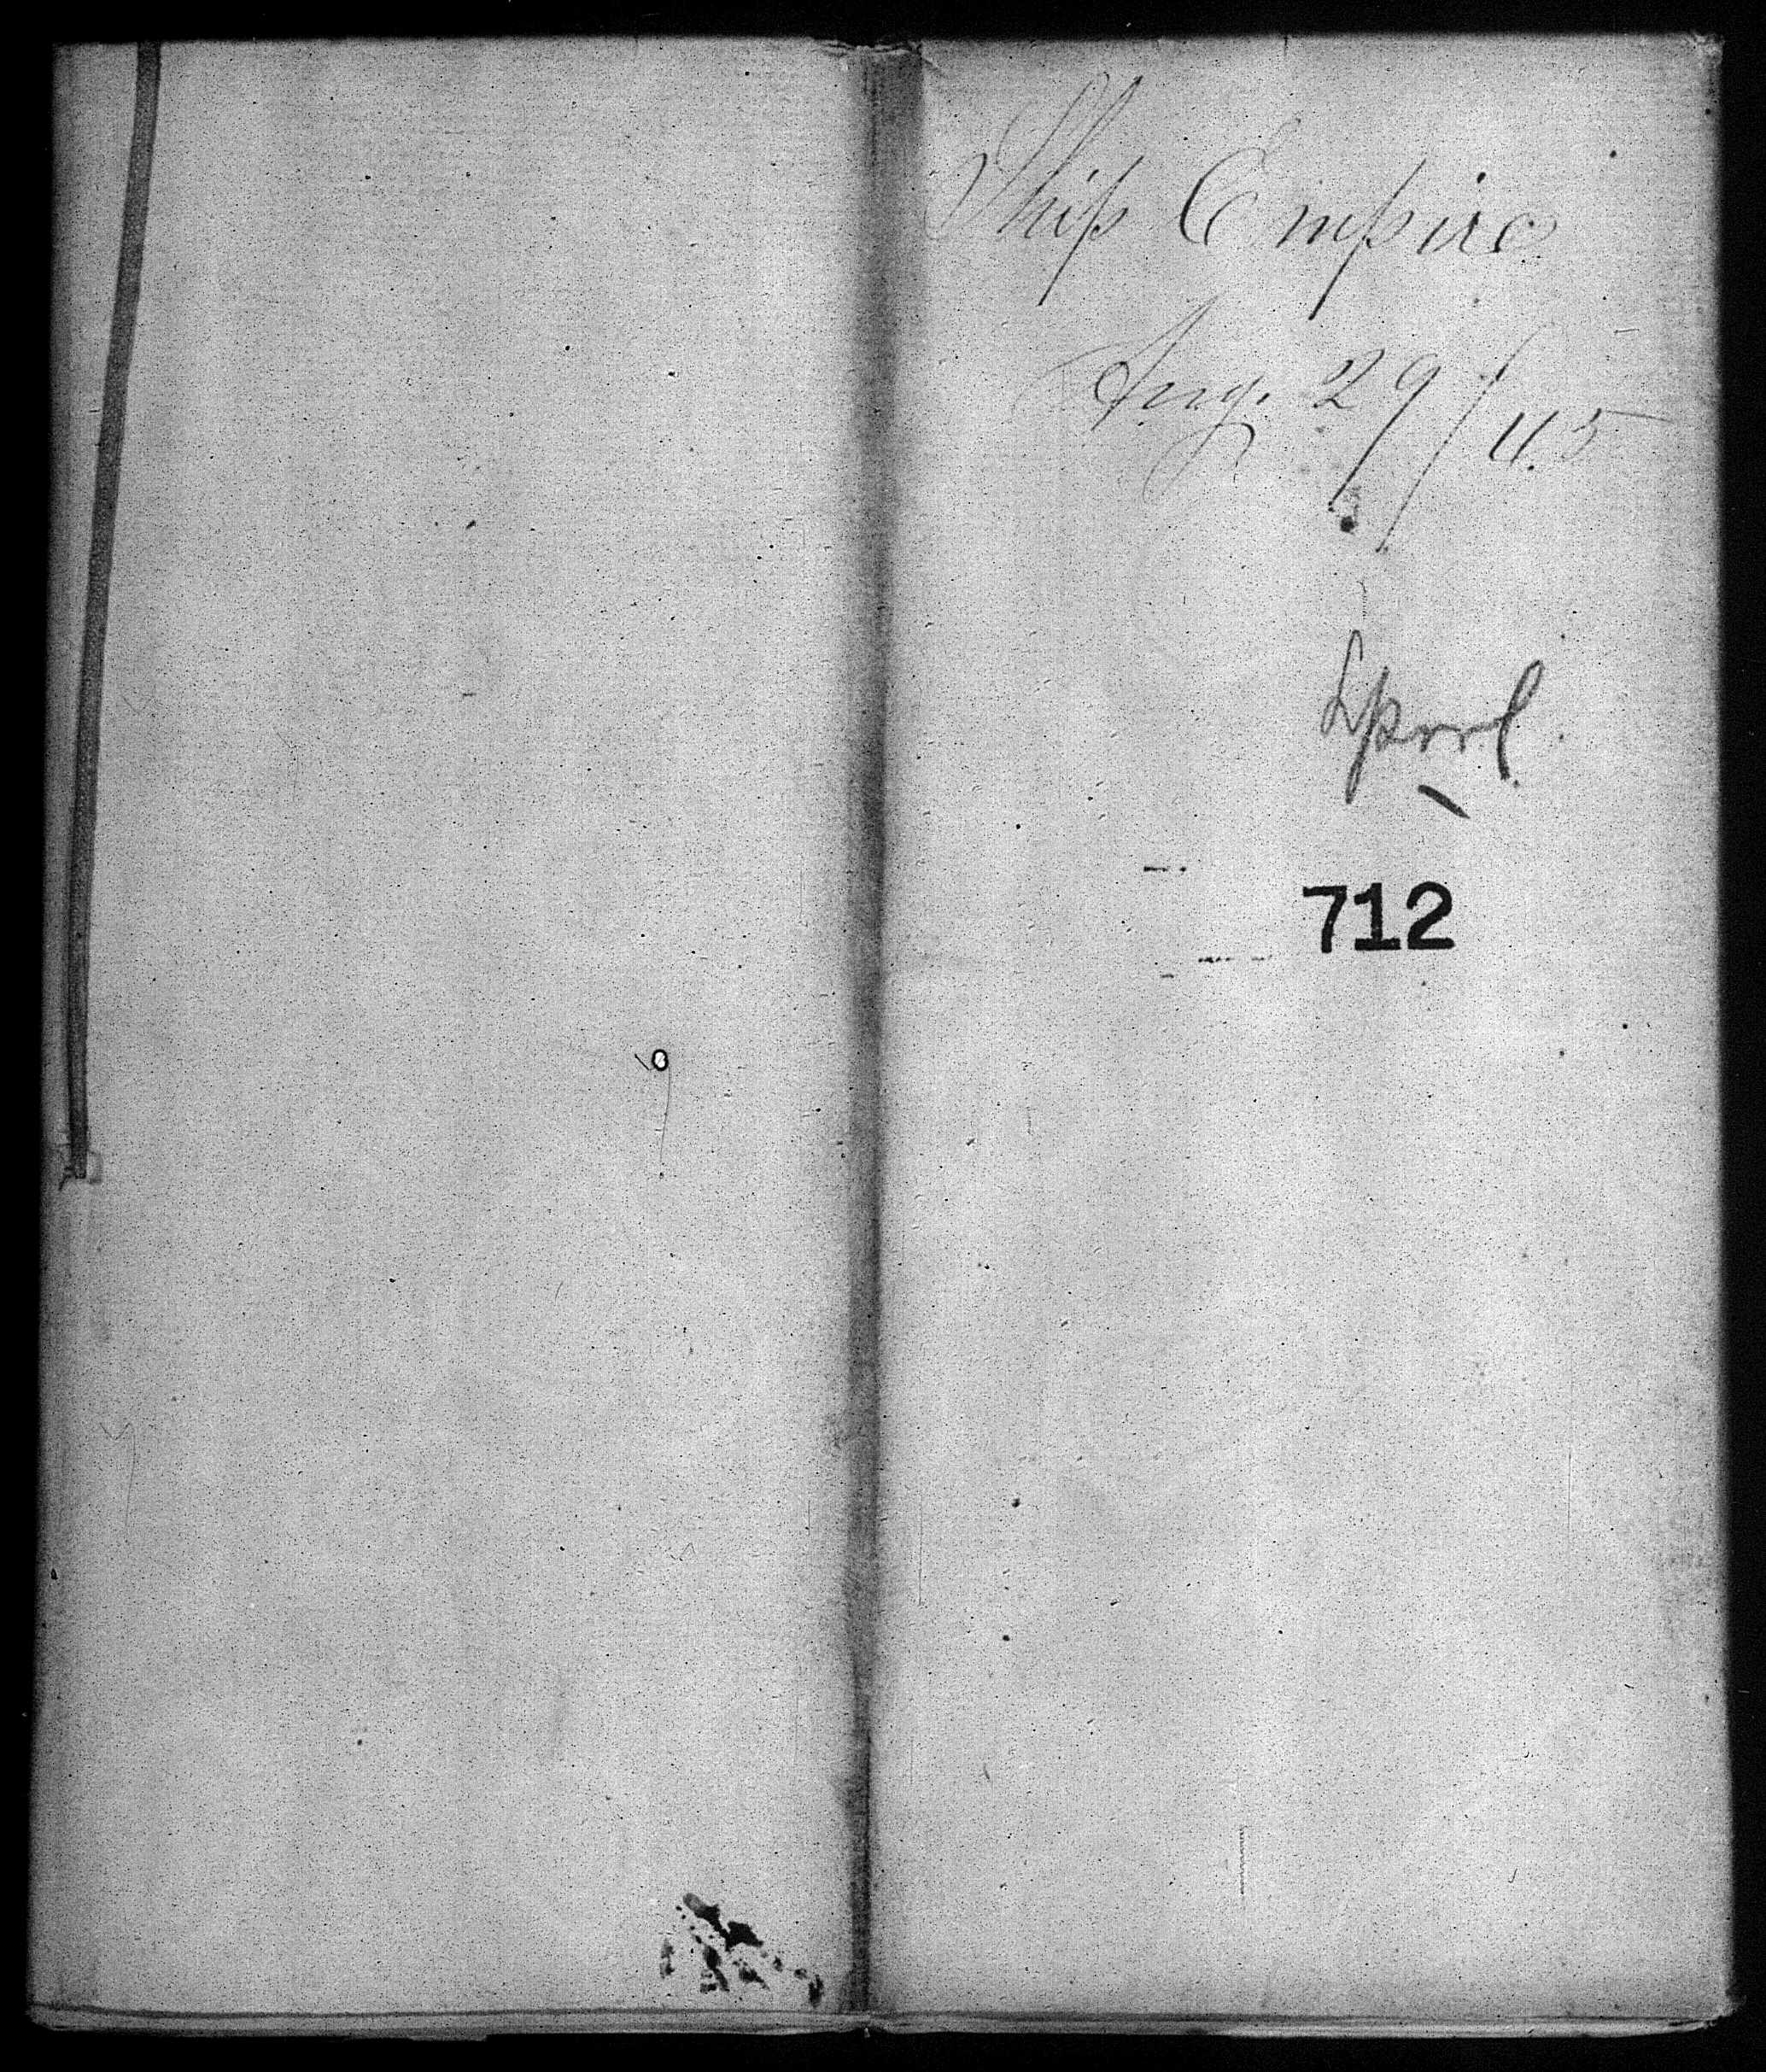 Ship Empire
Aug. 29/45
Lpool.
712